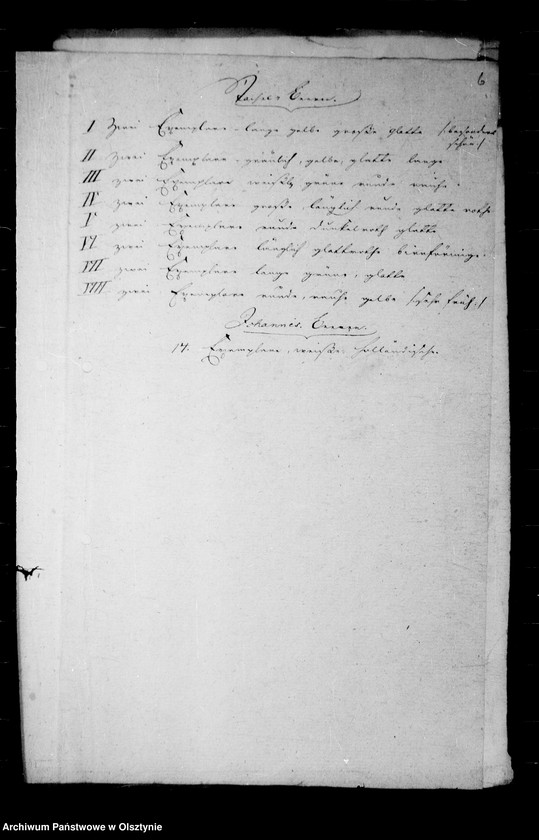 6
Stachel-Beeren.
I Zwei Exemplare lange gelbe große glatte /:besonders
schön:/
II zwei Exemplare, grünlich, gelbe, glatte lange
III zwei Exemplare weißlich grüne runde rauhe.
IV zwei Exemplare große, länglich runde glatte rothe
V zwei Exemplare runde dunkelroth glatte
VI zwei Exemplare länglich glattrothe birnförmige.
VII zwei Exemplare lange grüne, glatte
VIII zwei Exemplare runde, rauhe gelbe /:sehr früh:/
Johannis-Beeren.
14. Exemplare, weiße holländische.
Archiwum Państwowe w Olsztynie